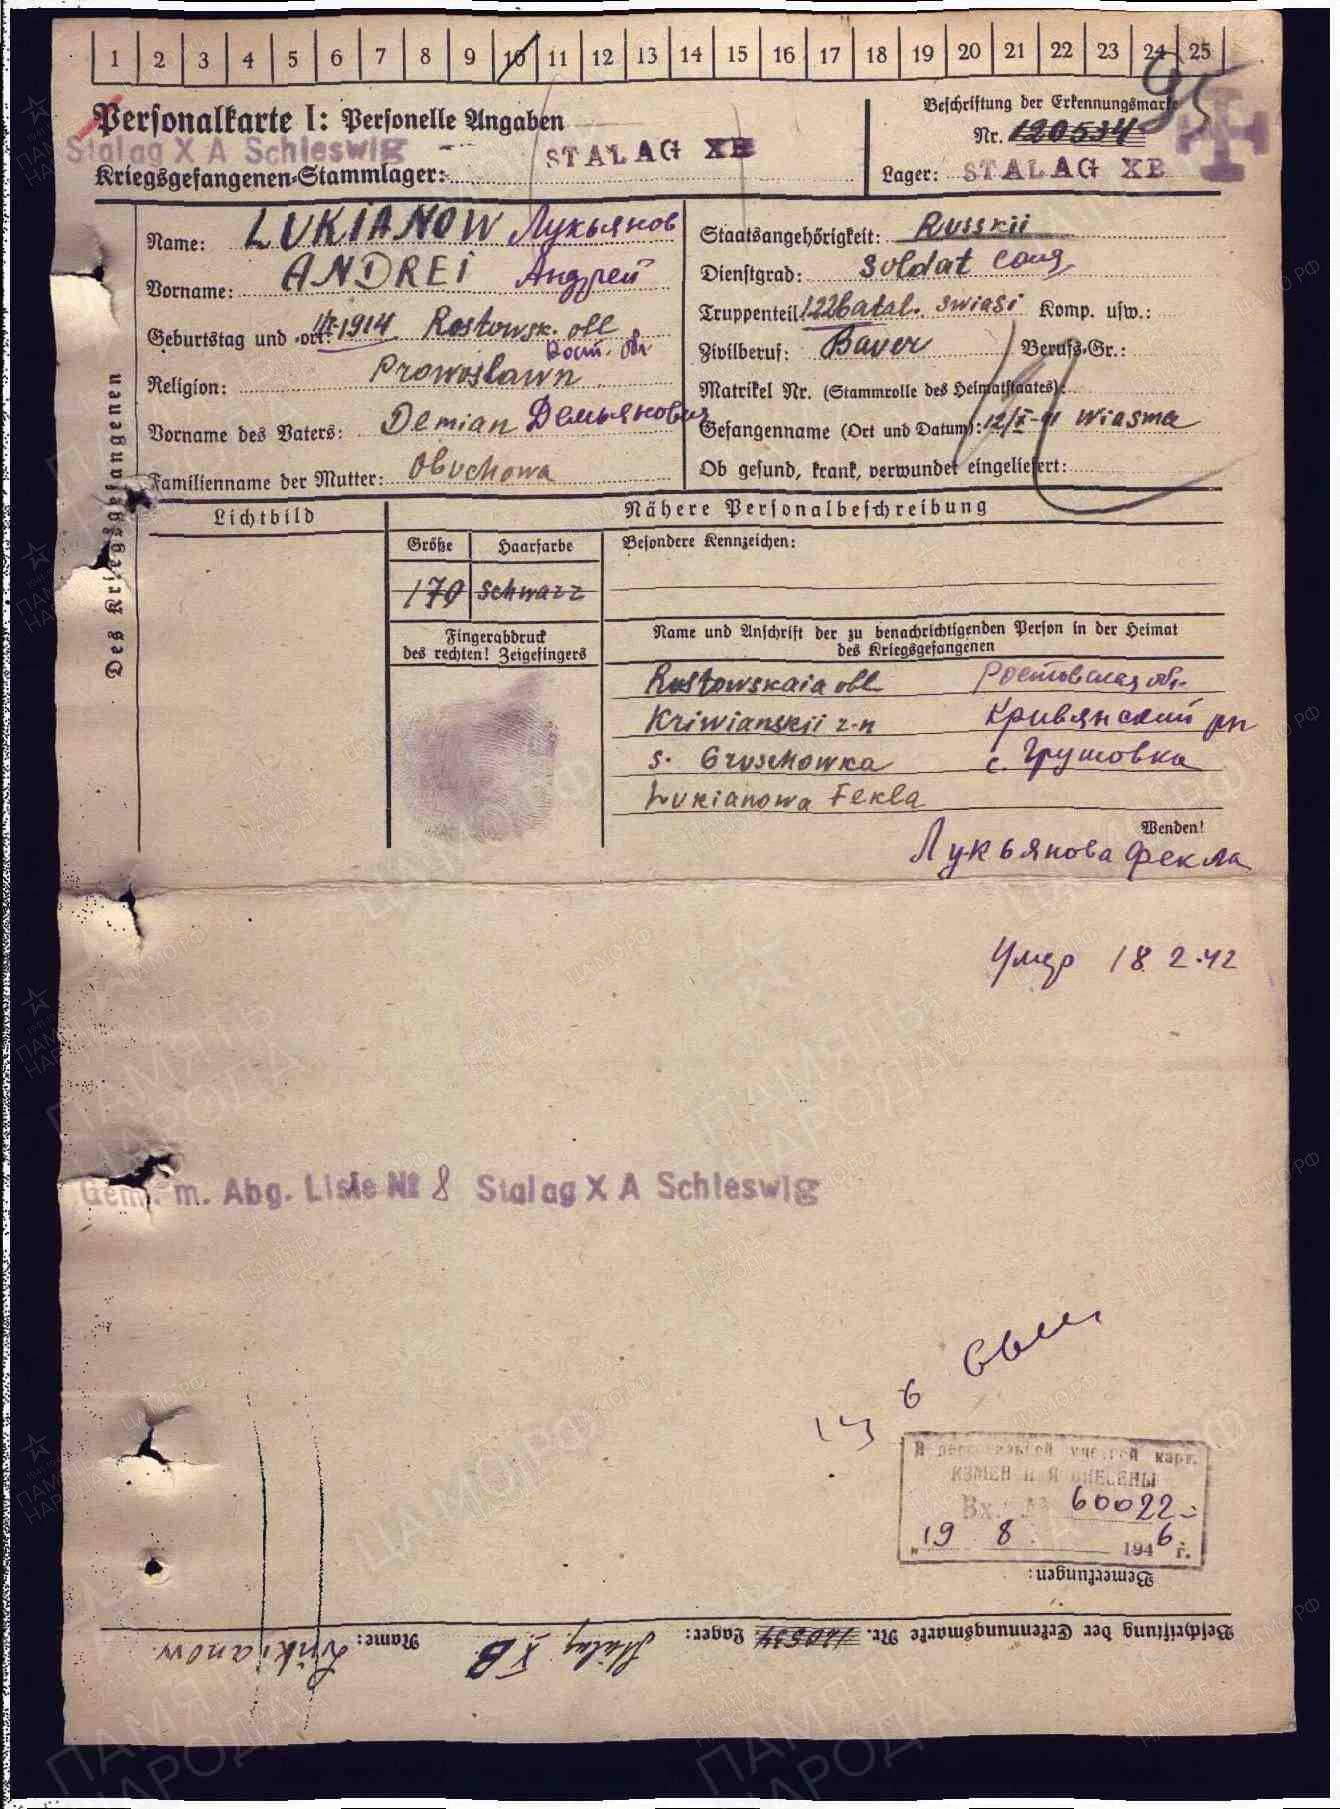 1 2 3 4 5 6 7 8 9 10 11 12 13 14 15 16 17 18 19 20 21 22 23 24 25
Personalkarte I: Personelle Angaben
Beschriftung der Erkennungsmarke
95
Nr. 120534
Stalag X A Schleswig
Kriegsgefangenen-Stammlager: STALAG XB
Lager: STALAG XB
Des Kriegsgefangenen
Name: LUKIANOW Лукьянов
Vorname: ANDREI Андрей
Geburtstag und -ort: 1914 Rostowsk. obl
Рост. обл
Religion: Prawoslawn
Vorname des Vaters: Demian Демьянович
Familienname der Mutter: Obuchowa
Staatsangehörigkeit: Russkii
Dienstgrad: Soldat солд
Truppenteil 122 Batal. swiasi Komp. usw.:
Zivilberuf: Bauer Berufs-Gr.:
Matrikel Nr. (Stammrolle des Heimatstaates):
Gefangenname (Ort und Datum): 12/X-41 Wiasma
Ob gesund, krank, verwundet eingeliefert:
Lichtbild
Nähere Personalbeschreibung
Größe
Haarfarbe
Besondere Kennzeichen:
170
schwarz
Fingerabdruck
des rechten! Zeigefingers
Name und Anschrift der zu benachrichtigenden Person in der Heimat
des Kriegsgefangenen
Rostowskaia obl Ростовская обл.
Kriwianskii r-n Кривянский рн
s. Gruschowka с. Грушовка
Lukianowa Fekla
Wenden!
Лукьянова Фекла
Умер 18.2.42
Gem. m. Abg. Liste № 8 Stalag X A Schleswig
В персональной учетной карт.
ИЗМЕНЕНИЯ ВНЕСЕНЫ
Вх. № 60022
"19 8 1946 г.
Bemerkungen:
Beschriftung der Erkennungsmarke Nr. 120534 Lager: Stalag XB Name: Lukianow
ПАМЯТЬ НАРОДА
ЦАМО.РФ